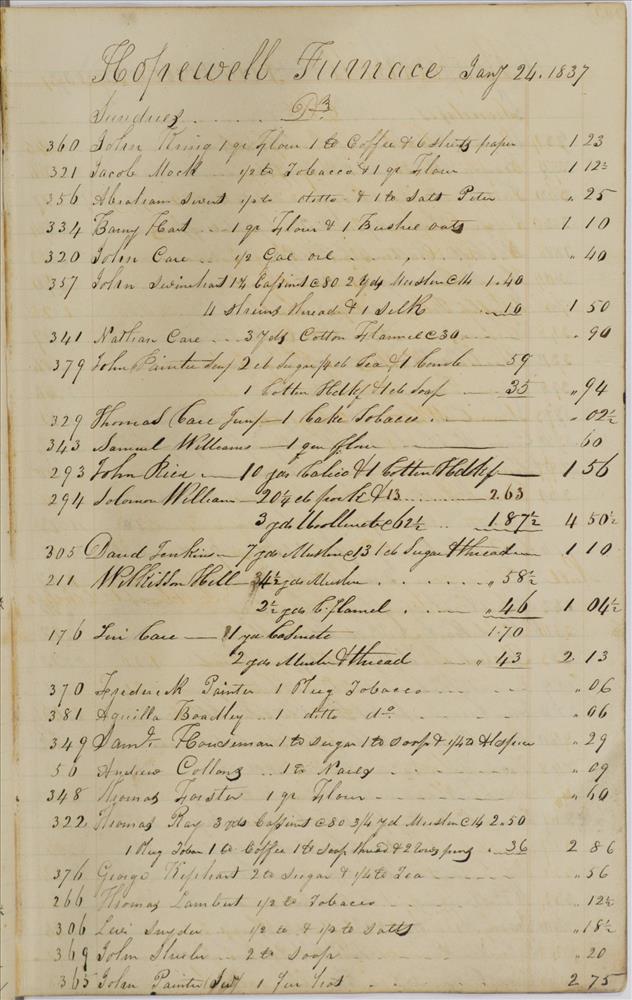 Hopewell Furnace Jany 24. 1837
Sundries Dr
360 John King 1 qr Flour 1 lb Coffee & 6 sheets paper 1 23
321 Jacob Mock 1/2 lb Tobacco & 1 qr Flour 1 12½
356 Abraham 1/2 lb ditto & 1 lb Salt Peter " 25
334 Harry Hart 1 qr Flour & 1 Bushel oats 1 10
320 John Care 1/2 Gal oil " 40
357 John Swinehart 1¼ Cassinet @ 80 2 yds Muslin @ 14 1.40
4 thread & 1 Silk 10 1 50
341 Nathan Care 3 yds Cotton Flannel @ 30 " 90
379 John Painter 2 lb Sugar 1/4 lb Tea & 1 Comb 59
1 Cotton Hdkf & 1 lb Soap 35 " 94
329 Thomas Care Jun 1 Cake Tobacco " 02½
343 Samuel Williams 1 qr flour 60
293 John Rice 10 yds Calico & 1 Cotton Hdkf 1 56
294 Solomon William 20¼ lb pork @ 13 2.63
3 yds @ 62½ 1 87½ 4 50½
305 David Jenkins 7 yds Muslin @ 13 1 lb Sugar & thread 1 10
211 Wilkisson Hill 4½ yds Muslin " 58½
2½ yds C. flannel " 46 1 04½
176 Levi Care 1 yd Casinete 1.70
2 yds Muslin & thread " 43 2 13
370 Frederick Painter 1 Plug Tobacco " 06
381 Aquilla Boadley 1 ditto do " 06
349 Saml Houseman 1 lb Sugar 1 lb Soap & 1/4 lb Alspice " 29
50 Andrew 1 lb Nails " 09
348 Thomas Forster 1 qr Flour " 60
322 Thomas Ray 3 yds Cassinet @ 80 3/4 yd Muslin @ 14 2.50
1 Plug Tobac 1 lb Coffee 1 lb Soap thread & 2 " 36 2 86
376 George Kephart 2 lb Sugar & 1/4 lb Tea " 56
266 Thomas Lambert 1/2 lb Tobacco " 12½
306 Levi Snyder 1/2 lb & 1/2 lb Salts " 18½
369 John 2 lb Soap " 20
365 John Painter 1 Fur hat 2 75